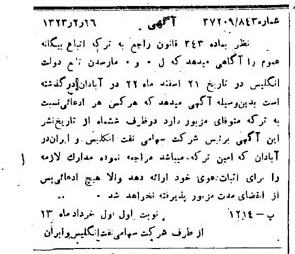 شماره ۳۷۲۰۹/۸۴۳ آگهی ۱۳۲۳/۲/۱۶
نظر بماده ۳۴۳ قانون راجع به ترکه اتباع بیگانه
عموم را آگاهی میدهد که ل ۰ و ۰ مارسدن تبع دولت
انگلیس در تاریخ ۲۱ اسفند ماه ۲۲ در آبادان درگذشته
است بدین وسیله آگهی میدهد که هر کس هر ادعائی نسبت
به ترکه متوفای مزبور دارد در ظرف ششماه از تاریخ نشر
این آگهی برئیس شرکت سهامی نفت انگلیس و ایران در
آبادان که امین ترکه میباشد مراجعه نموده مدارک لازمه
را برای اثبات دعوی خود ارائه دهد والا هیچ ادعائی پس
از انقضای مدت مزبور پذیرفته نخواهد شد
پ-۱۲۱۴ نوبت اول اول خرداد ماه ۱۳
از طرف شرکت سهامی نفت انگلیس و ایران